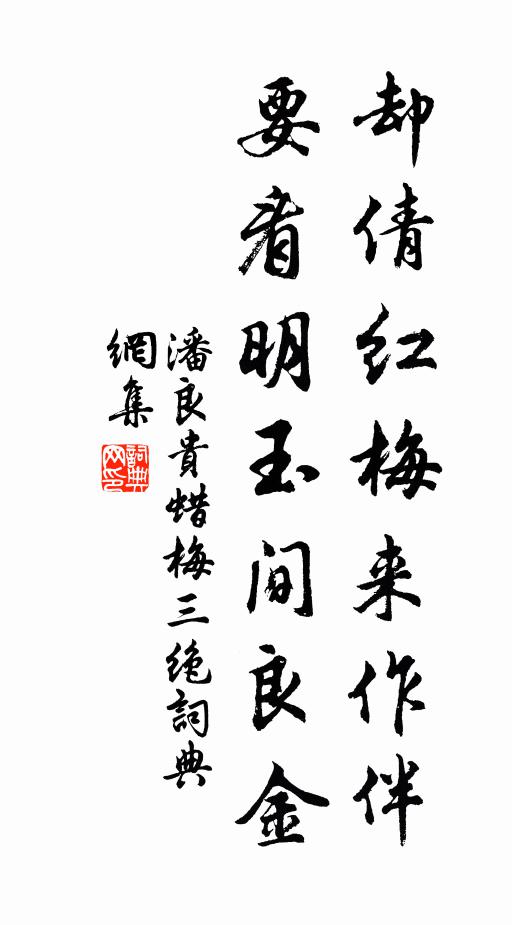 却倩红梅来作伴
要看明玉间良金
潘良貴蜡梅三绝詞典
網集
詞典网印